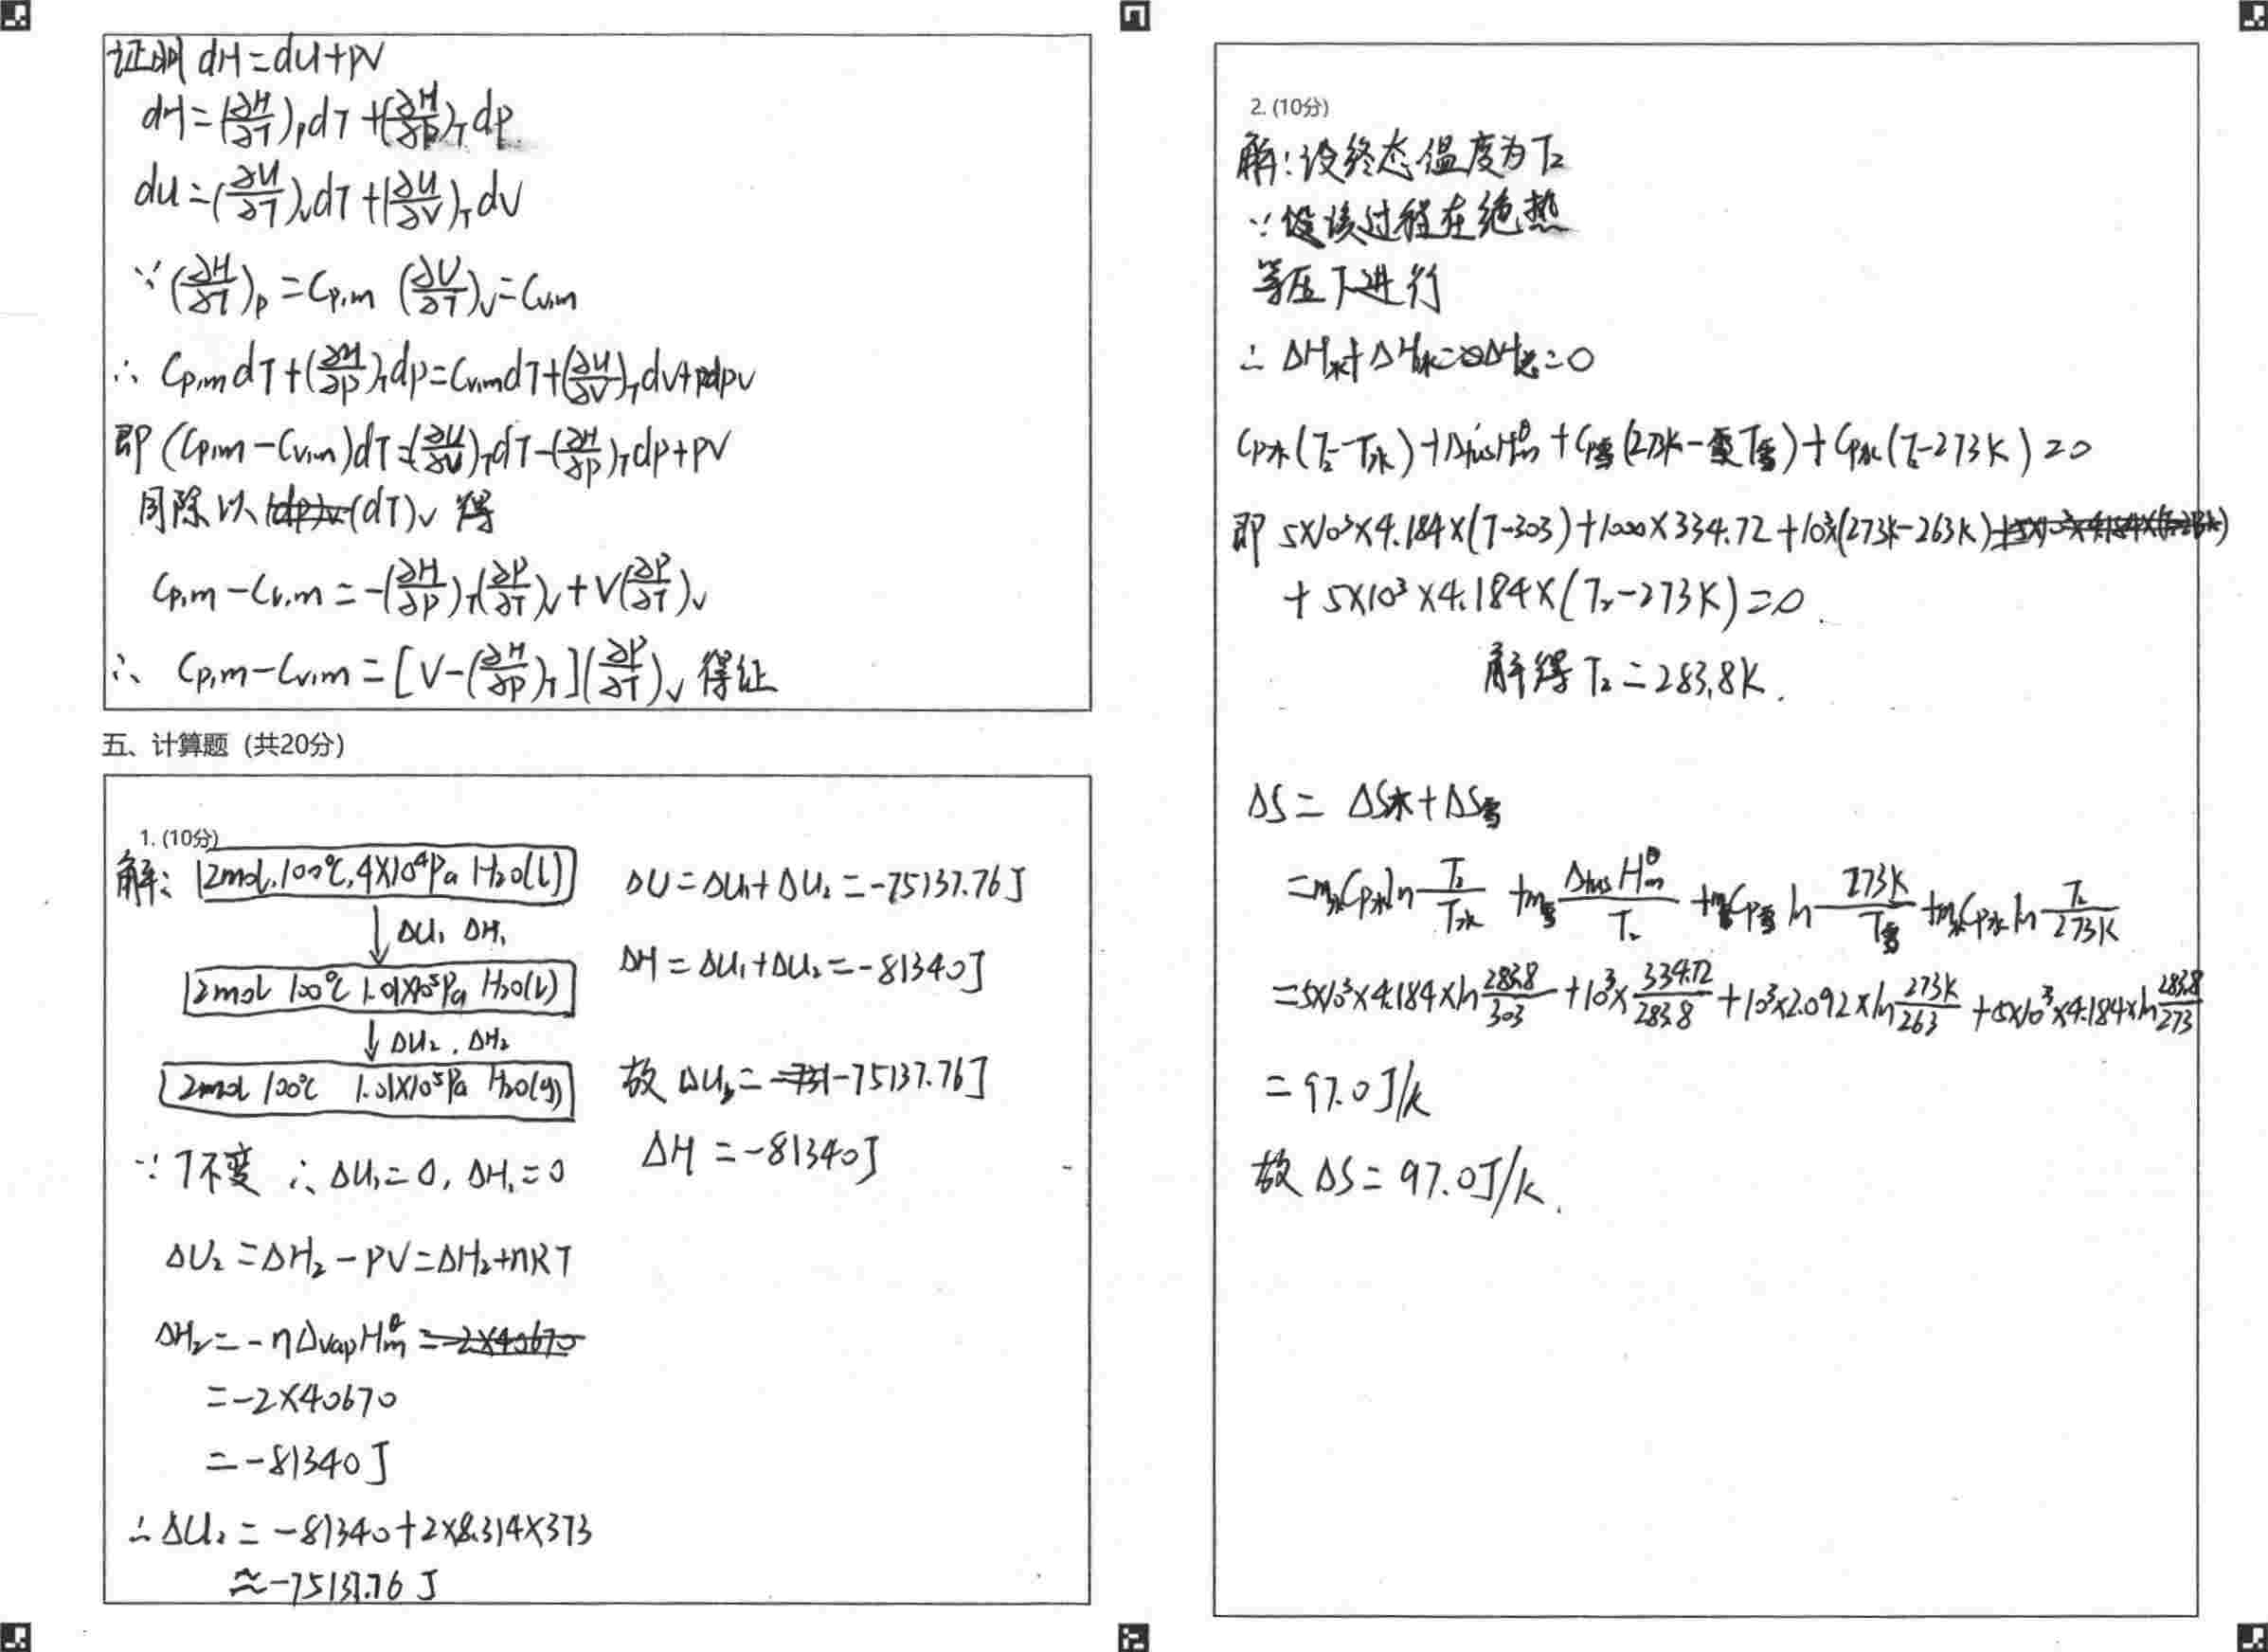 证明 dH=dU+pV
dH=(∂H/∂T)_p dT+(∂H/∂p)_T dp
dU=(∂U/∂T)_V dT+(∂U/∂V)_T dV
∵(∂H/∂T)_p=Cp,m (∂U/∂T)_V=Cv,m
∴ Cp,m dT+(∂H/∂p)_T dp=Cv,m dT+(∂U/∂V)_T dV+dpV
即 (Cp,m-Cv,m)dT=(∂U/∂V)_T dT-(∂H/∂p)_T dp+pV
同除以 (dT)_V 得
Cp,m-Cv,m=-(∂H/∂p)_T(∂p/∂T)_V+V(∂p/∂T)_V
∴ Cp,m-Cv,m=[V-(∂H/∂p)_T](∂p/∂T)_V 得证
五、计算题（共20分）
1. (10分)
解: 2mol.100℃,4×10⁴Pa H₂O(l)
↓ΔU₁ ΔH₁
2mol 100℃ 1.01×10⁵Pa H₂O(l)
↓ΔU₂ . ΔH₂
2mol 100℃ 1.01×10⁵Pa H₂O(g)
∵T不变 ∴ΔU₁=0, ΔH₁=0
ΔU₂=ΔH₂-PV=ΔH₂+nRT
ΔH₂=-nΔvapHm^θ =-2×40670
=-2×40670
=-81340J
∴ΔU₂=-81340+2×8.314×373
≈-75137.76 J
ΔU=ΔU₁+ΔU₂=-75137.76J
ΔH=ΔU₁+ΔU₂=-81340J
故 ΔU=-75137.76J
ΔH=-81340J
2. (10分)
解:设终态温度为T₂
∵设该过程在绝热
等压下进行
∴ΔH水+ΔH冰=ΔH总=0
Cp水(T₂-T水)+ΔfusHm^θ+Cp雪(273K-T雪)+Cp水(T₂-273K)=0
即 5×10³×4.184×(T-303)+1000×334.72+10³×(273K-263K)
+5×10³×4.184×(T₂-273K)=0.
解得T₂=283.8K.
ΔS=ΔS水+ΔS雪
=m水Cp水ln T₂/T水 +m雪 ΔfusHm^θ/T₂ +m雪Cp雪 ln 273K/T雪 +m水Cp水 ln T₂/273K
=5×10³×4.184×ln 283.8/303 +10³× 334.72/283.8 +10³×2.092×ln 273K/263 +5×10³×4.184×ln 283.8/273
=97.0J/k
故ΔS=97.0J/k.